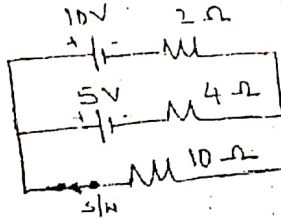 10V 2 Ω
+ -
5V 4 Ω
+ -
10 Ω
S/W